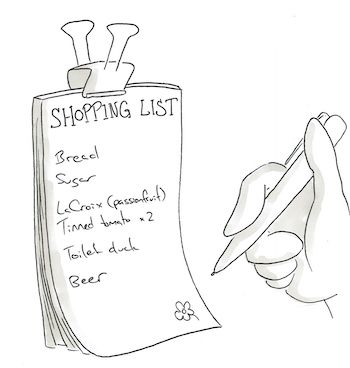 SHOPPING LIST
Bread
Sugar
LaCroix (passionfruit)
Tinned tomato x 2
Toilet duck
Beer